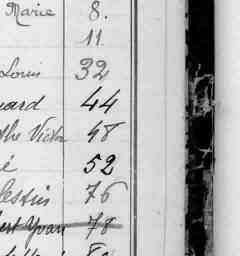 Marie 8.
11.
Louis 32
uard 44
the Victor 48
é 52
lestin 76
bert Yvan 78